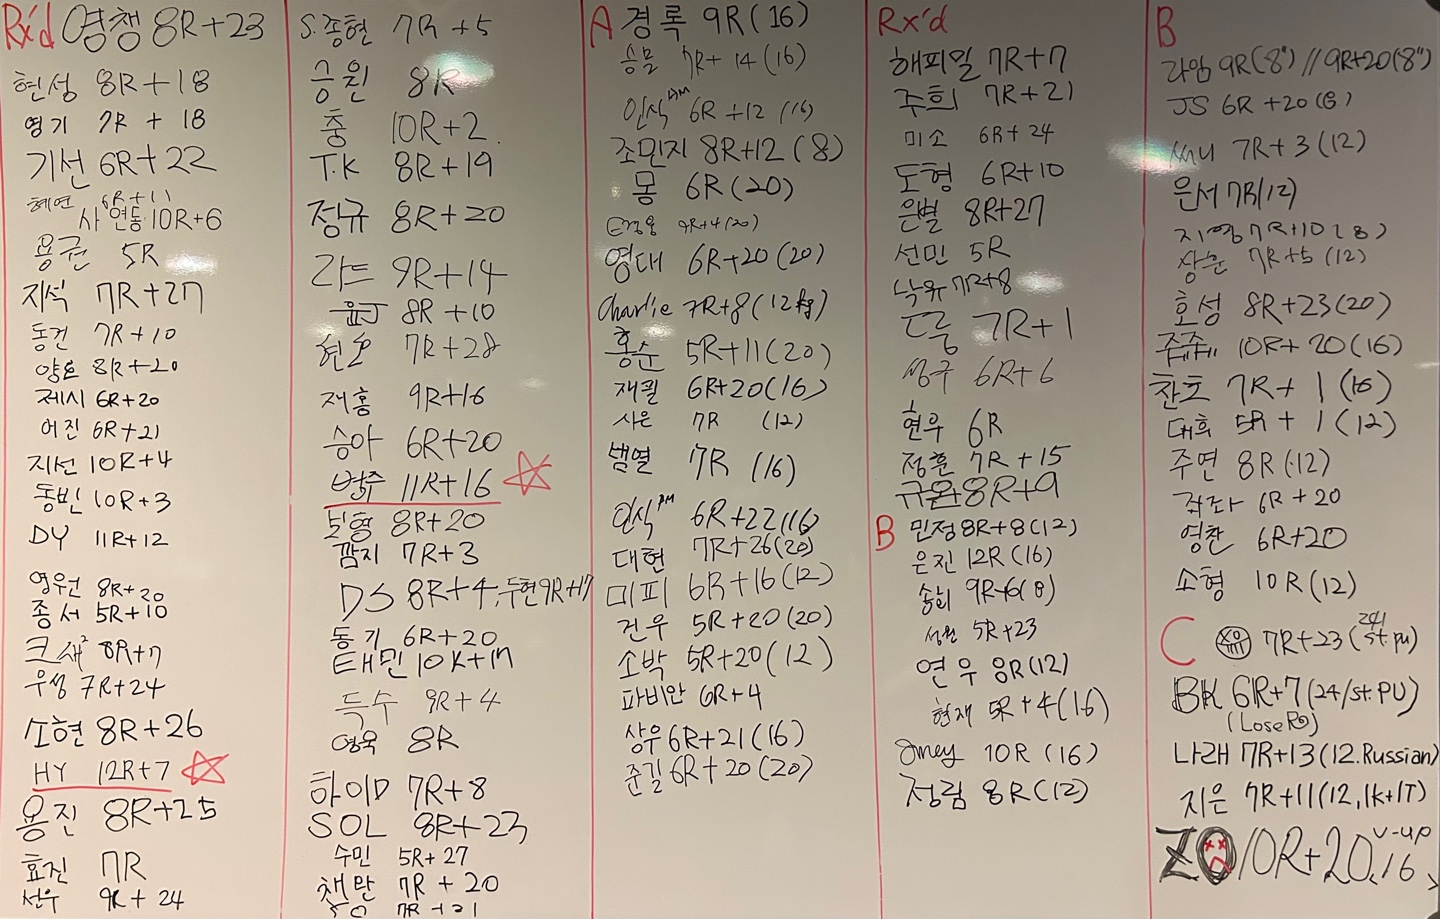 Rx'd 영챙 8R+23
현성 8R+18
영기 7R + 18
기선 6R+22
혜연 6R+11
사 연동 10R+6
용권 5R
지석 7R+27
동건 7R+10
양표 8R+20
제시 6R+20
어진 6R+21
지선 10R+4
동빈 10R+3
DY 11R+12
영우원 8R+20
종서 5R+10
크새² 8R+7
우성 7R+24
소현 8R+26
HY 12R+7
용진 8R+25
효진 7R
선우 9R+24
S.종현 7R+5
승원 8R
충 10R+2
T.K 8R+19
정규 8R+20
라드 9R+14
윤J 8R+10
현호 7R+28
재홍 9R+16
승아 6R+20
11R+16
보형 8R+20
깜지 7R+3
DS 8R+4, 두현 9R+17
동기 6R+20
태민 10R+17
득수 9R+4
영욱 8R
하이D 7R+8
SOL 8R+23
수민 5R+27
챔만 7R+20
7R+21
A 경록 9R(16)
승물 7R+14(16)
인식AM 6R+12(16)
조민지 8R+12(8)
몽 6R(20)
9R+4(20)
영대 6R+20(20)
Charlie 7R+8(12kg)
홍순 5R+11(20)
재필 6R+20(16)
사은 7R (12)
쌤열 7R (16)
인식PM 6R+22(16)
대현 7R+26(20)
미피 6R+16(12)
건우 5R+20(20)
소박 5R+20(12)
파비안 6R+4
상우 6R+21(16)
준길 6R+20(20)
Rx'd
해피밀 7R+7
주희 7R+21
미소 6R+24
도형 6R+10
은별 8R+27
선민 5R
낙유 7R+8
드룽 7R+1
성구 6R+6
현우 6R
정훈 7R+15
규완 8R+9
B 민정 8R+8(12)
은진 12R(16)
송희 9R+6(8)
성원 5R+23
연우 8R(12)
현재 5R+4(16)
Jmey 10R(16)
정림 8R(12)
B
라암 9R(8") // 9R+20(8")
JS 6R+20(8)
써니 7R+3(12)
은서 7R(12)
지영 7R+10(8)
장훈 7R+5(12)
호성 8R+23(20)
10R+20(16)
찬호 7R+1(16)
대희 5R+1(12)
주연 8R(12)
좌좌 6R+20
영찬 6R+20
소형 10R(12)
C 7R+23(24/st.pu)
BK 6R+7(24/st.PU)
(Lose R)
나래 7R+13(12.Russian)
지은 7R+11(12,1K+1T)
ZO 10R+20, v-up 16